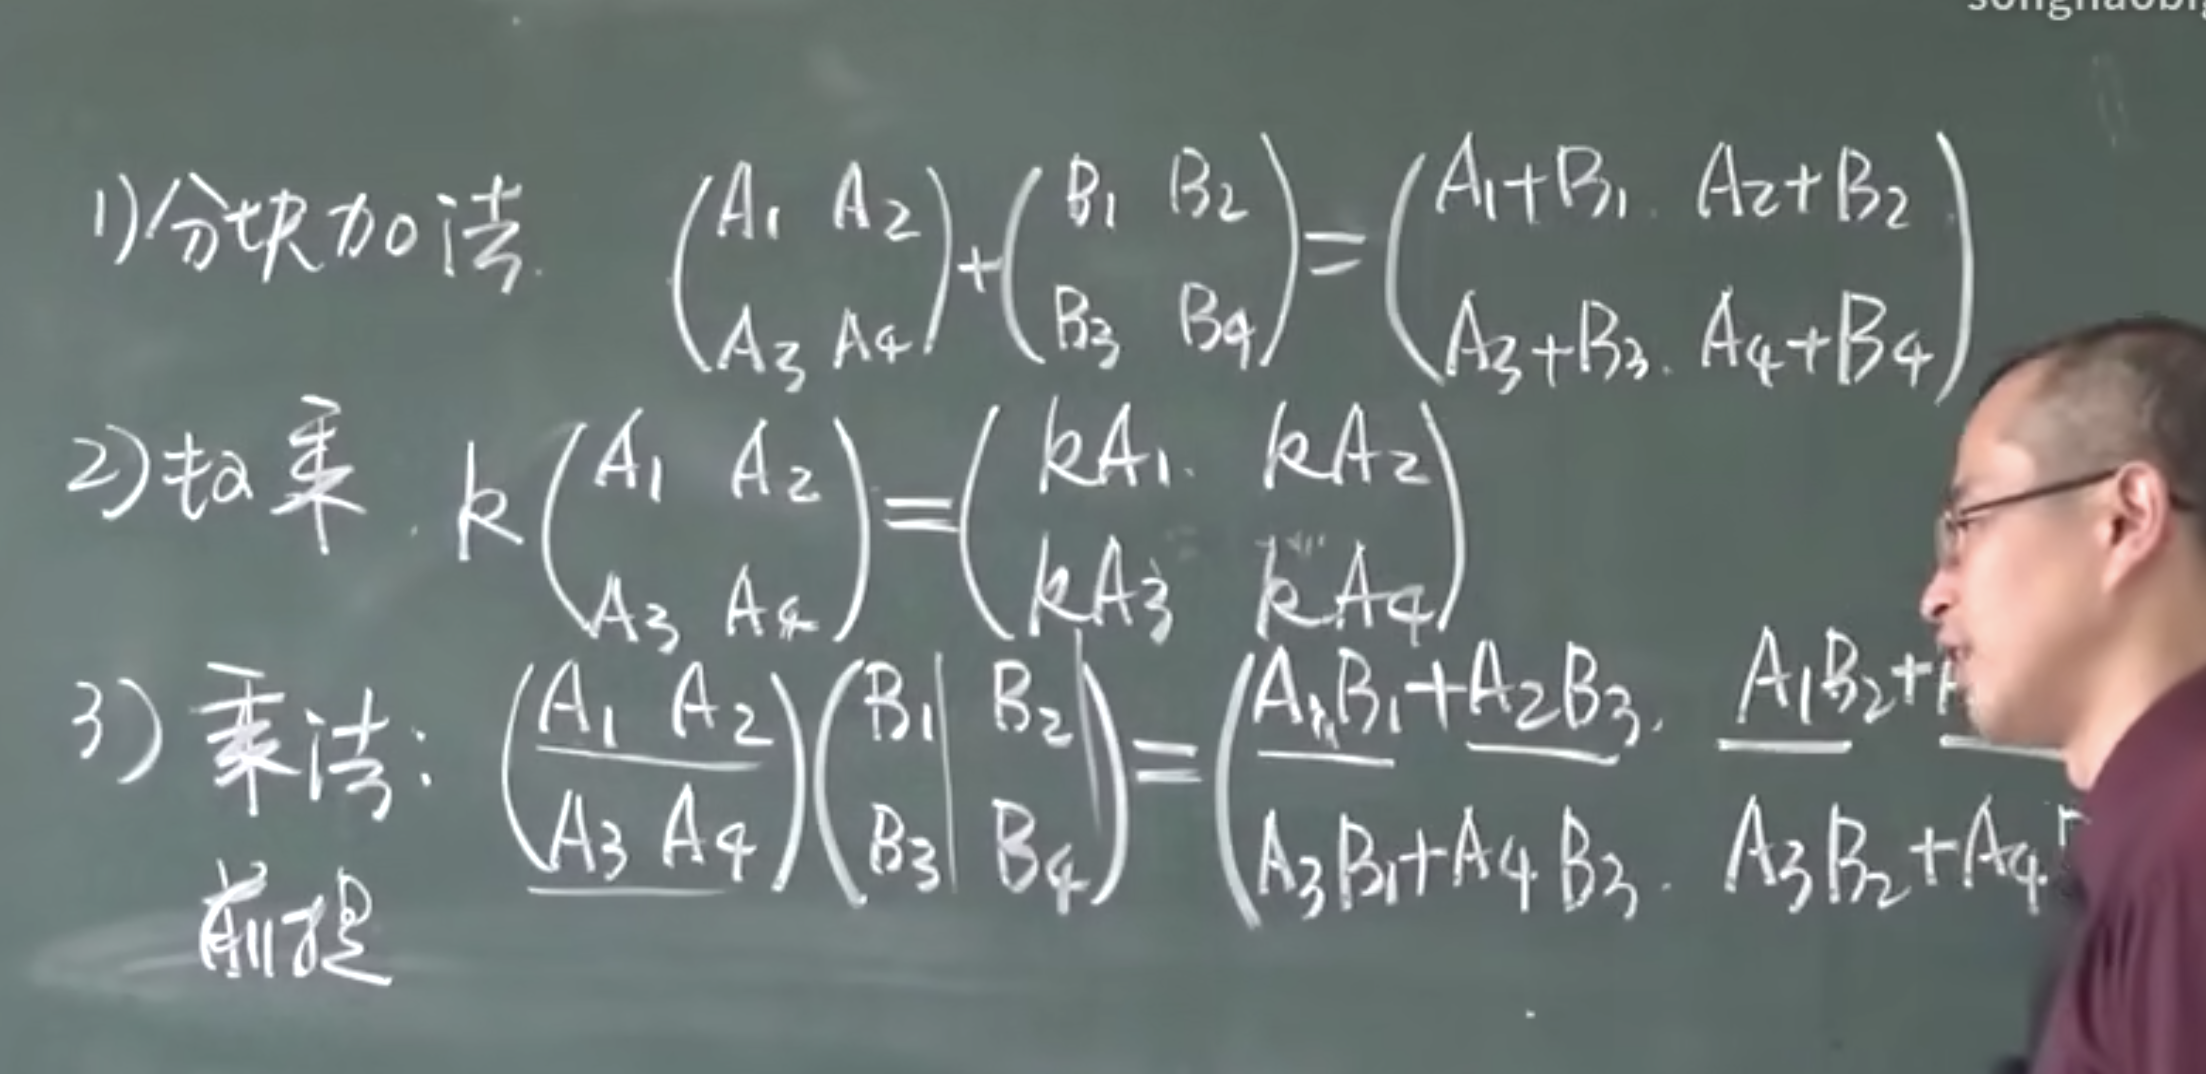 1)分块加法. (A₁ A₂ A₃ A₄)+(B₁ B₂ B₃ B₄)=(A₁+B₁. A₂+B₂ A₃+B₃. A₄+B₄)
2)数乘. k(A₁ A₂ A₃ A₄)=(kA₁. kA₂ kA₃ kA₄)
3)乘法: (A₁ A₂ A₃ A₄)(B₁ B₂ B₃ B₄)=(A₁B₁+A₂B₃. A₁B₂+ A₃B₁+A₄B₃. A₃B₂+A₄
前提